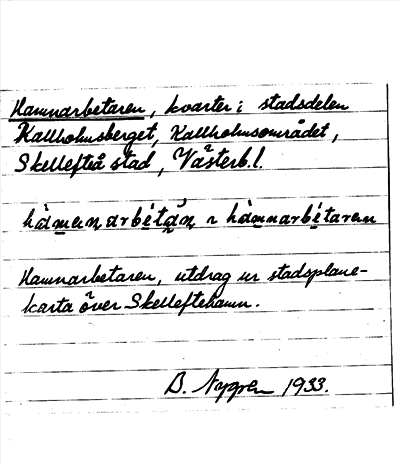 Hamnarbetaren, kvarter i stadsdelen
Kallholmsberget, Kallholmsområdet,
Skellefteå stad, Västerb.l.
hàmnarbétaren
Hamnarbetaren, utdrag ur stadsplane-
karta över Skelleftehamn.
B. Nygren 1933.